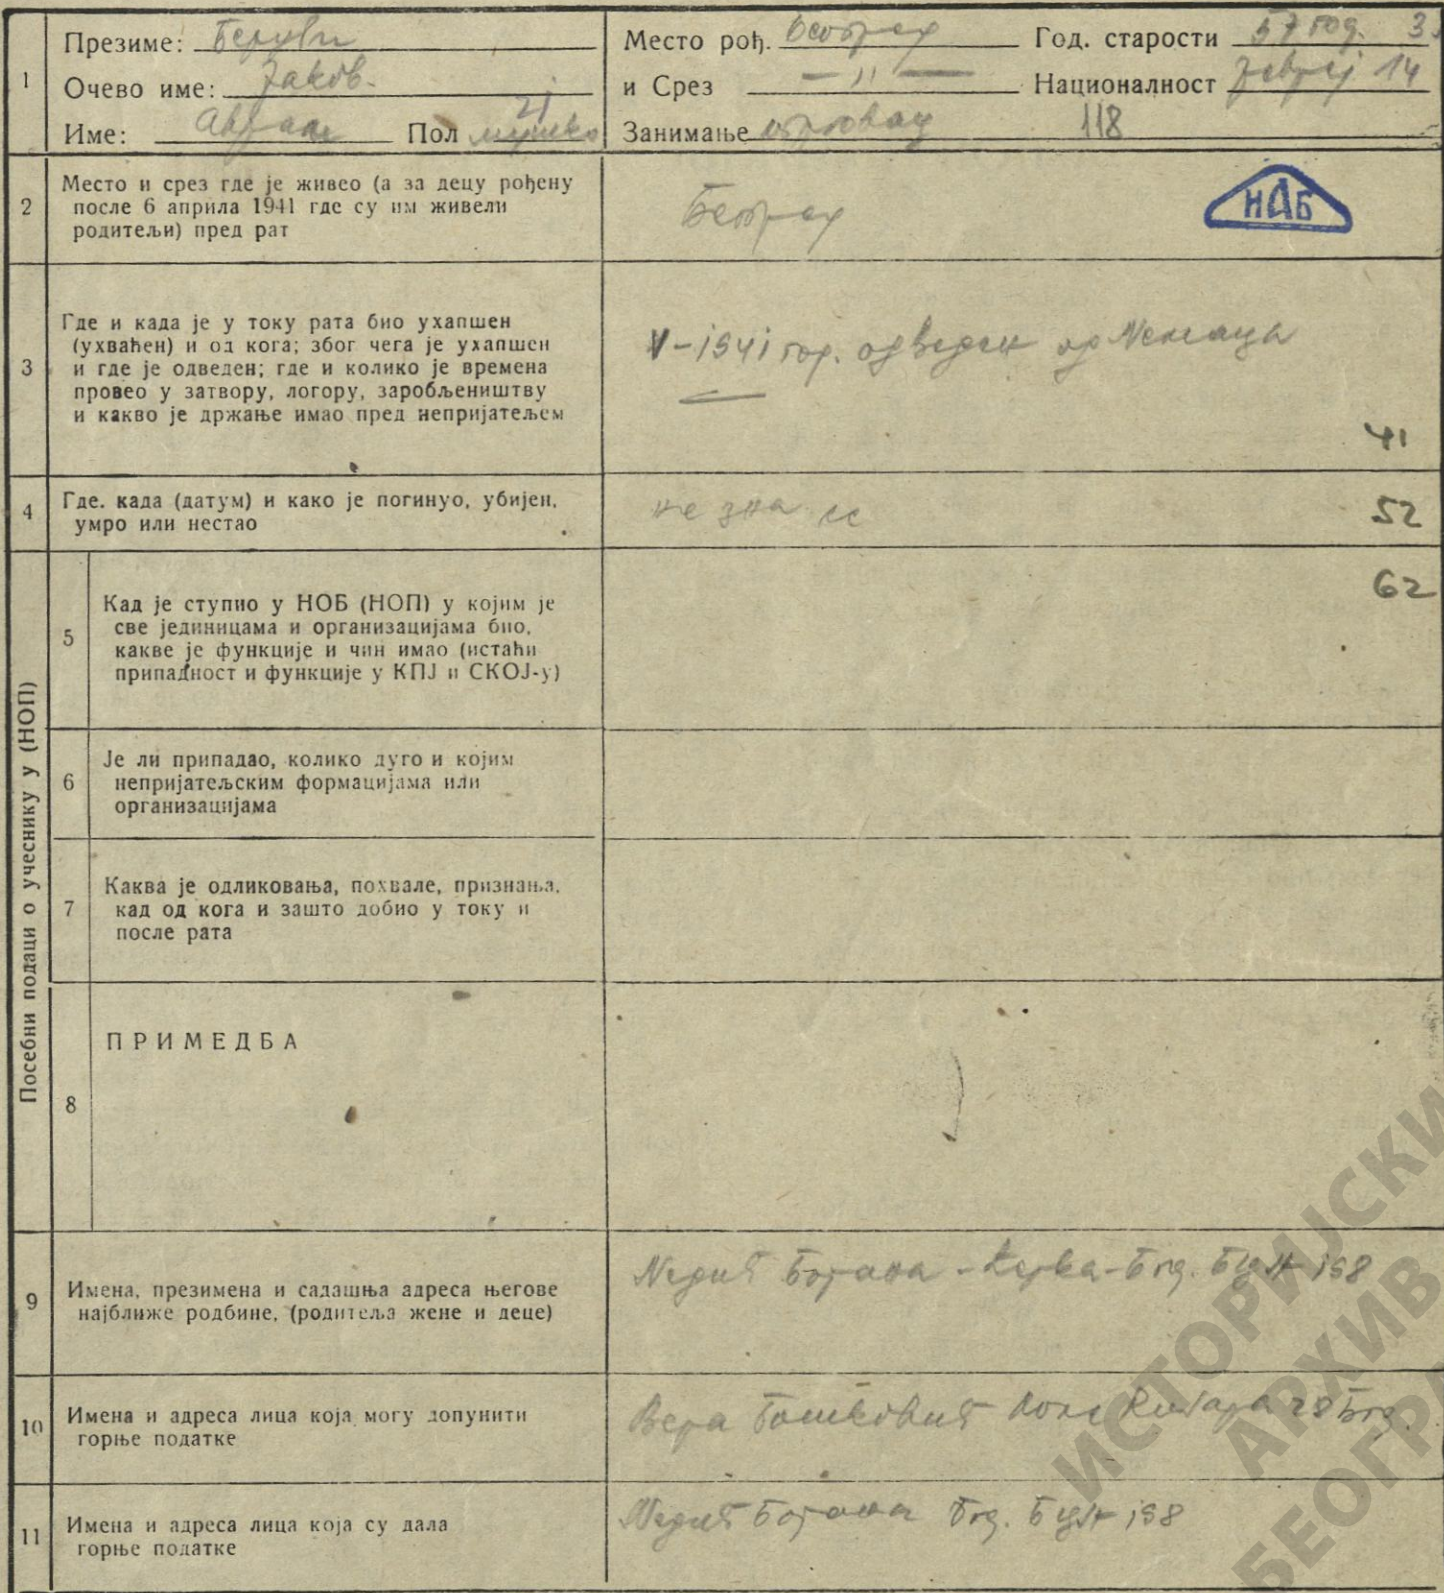 1
Презиме: Беруви
Очево име: Јаков.
Име: Аврам Пол мушко 21
Место рођ. Београд Год. старости 57 год. 3
и Срез — 11 — Националност Јеврај 14
Занимање трговац 118
2
Место и срез где је живео (а за децу рођену
после 6 априла 1941 где су им живели
родитељи) пред рат
Београд
НАБ
3
Где и када је у току рата био ухапшен
(ухваћен) и од кога; због чега је ухапшен
и где је одведен; где и колико је времена
провео у затвору, логору, заробљеништву
и какво је држање имао пред непријатељем
V-1941 год. одведен од Немаца
41
4
Где. када (датум) и како је погинуо, убијен,
умро или нестао
не зна се
52
Посебни подаци о учеснику у (НОП)
5
Кад је ступио у НОБ (НОП) у којим је
све јединицама и организацијама био,
какве је функције и чин имао (истаћи
припадност и функције у КПЈ и СКОЈ-у)
62
6
Је ли припадао, колико дуго и којим
непријатељским формацијама или
организацијама
7
Каква је одликовања, похвале, признања,
кад од кога и зашто добио у току и
после рата
8
ПРИМЕДБА
9
Имена, презимена и садашња адреса његове
најближе родбине, (родитеља жене и деце)
Недић Бојана - ћерка - Бгд. Бул 158
10
Имена и адреса лица која могу допунити
горње податке
Вера Бошковић Рибара 28 Бгд.
11
Имена и адреса лица која су дала
горње податке
Недић Бојана Бгд. Бул 158
ИСТОРИЈСКИ
АРХИВ
БЕОГРА